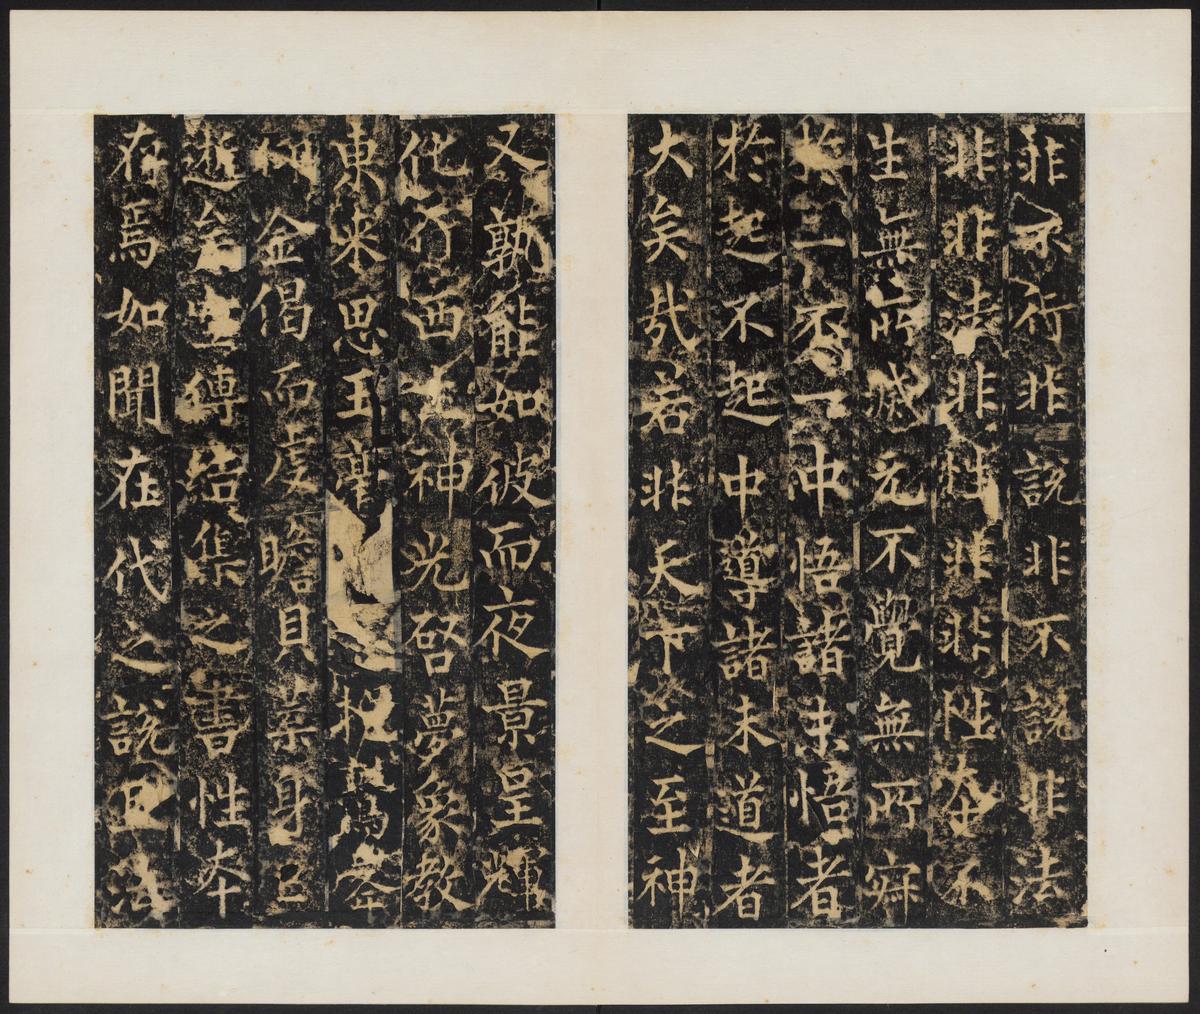 非不行非說非不說非法
非非法非性非非性本不
生無所滅元不覺無所寐
於一不一中悟諸未悟者
於起不起中導諸未道者
大矣哉若非天下之至神
又孰能如彼而夜景皇輝
化行西土神光啓夢象教
東來思玉毫
金偈而度瞻貝葉身已
逝矣言傳結集之書性本
存焉如聞在代之說且法